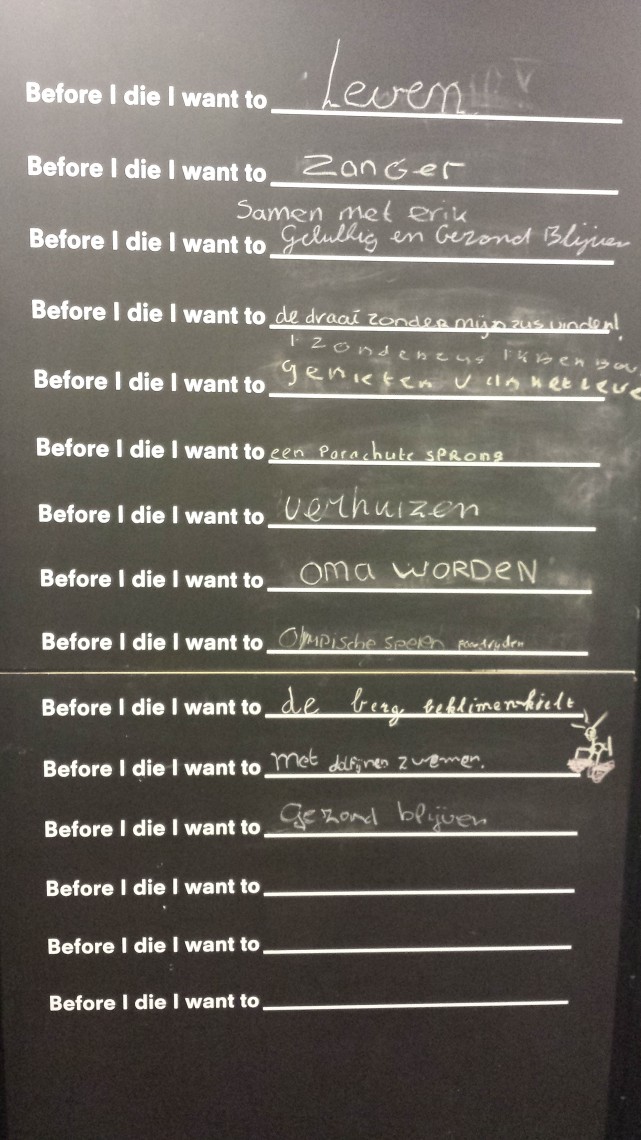 Before I die I want to Leven
Before I die I want to Zanger
Samen met erik
Before I die I want to Gelukkig en Gezond Blijven
Before I die I want to de draai zonder mijn zus vinden!
Before I die I want to genieten van het leve
Before I die I want to een Parachute SPRong
Before I die I want to verhuizen
Before I die I want to OMA WORDEN
Before I die I want to Olympische spelen
Before I die I want to de berg beklimen
Before I die I want to met dolfijnen zwemen.
Before I die I want to Gezond blijven
Before I die I want to
Before I die I want to
Before I die I want to